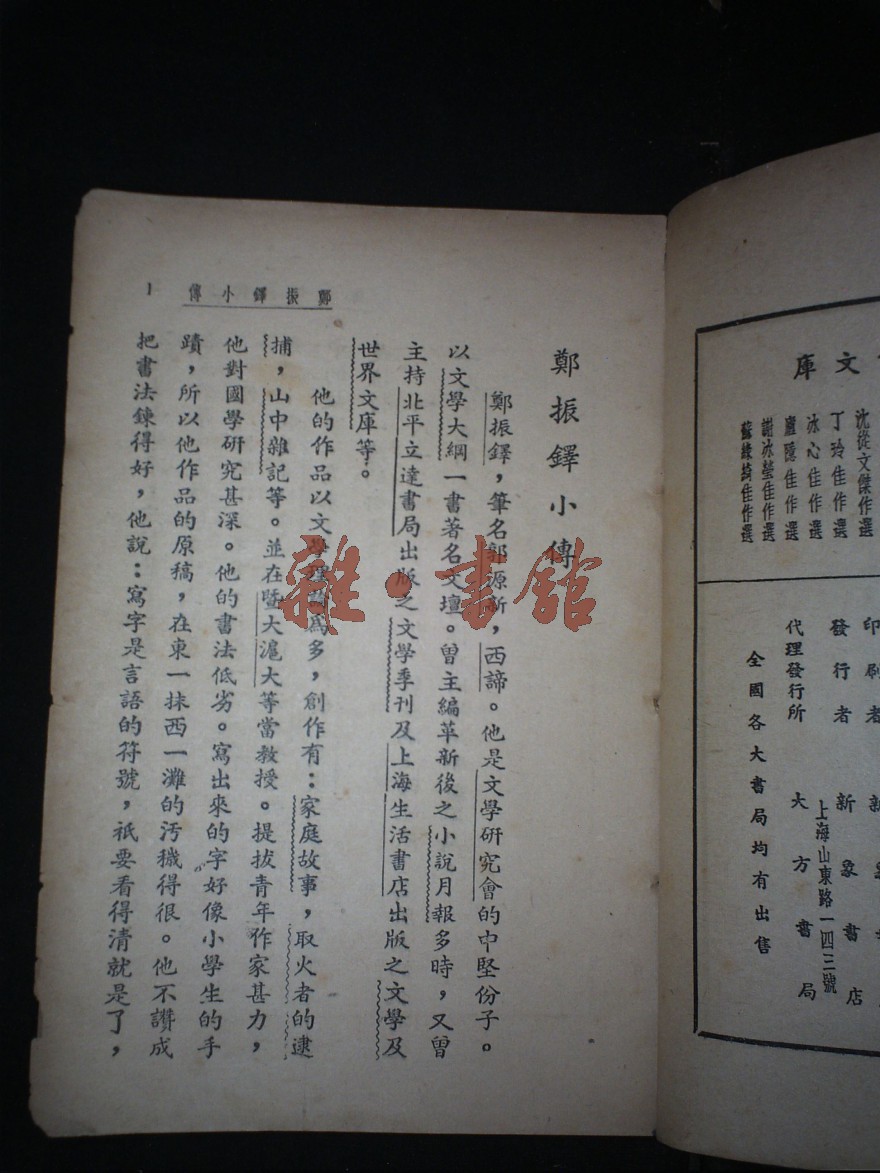 庫
沈從文傑作選
丁玲佳作選
冰心佳作選
廬隱佳作選
謝冰瑩佳作選
蘇綠漪佳作選
印刷者
發行者 新象書店
上海山東路一四三號
代理發行所 大方書局
全國各大書局均有出售
鄭振鐸小傳
鄭振鐸,筆名郭源新,西諦。他是文學研究會的中堅份子。
以文學大綱一書著名文壇。曾主編革新後之小說月報多時,又曾
主持北平立達書局出版之文學季刊及上海生活書店出版之文學及
世界文庫等。
他的作品以文學理論爲多,創作有:家庭故事,取火者的逮
捕,山中雜記等。並在暨大滬大等當教授。提拔青年作家甚力,
他對國學研究甚深。他的書法低劣。寫出來的字好像小學生的手
蹟,所以他作品的原稿,在東一抹西一灘的汚穢得很。他不讚成
把書法鍊得好,他說:寫字是言語的符號,祇要看得清就是了,
鄭振鐸小傳
1
雜·書館